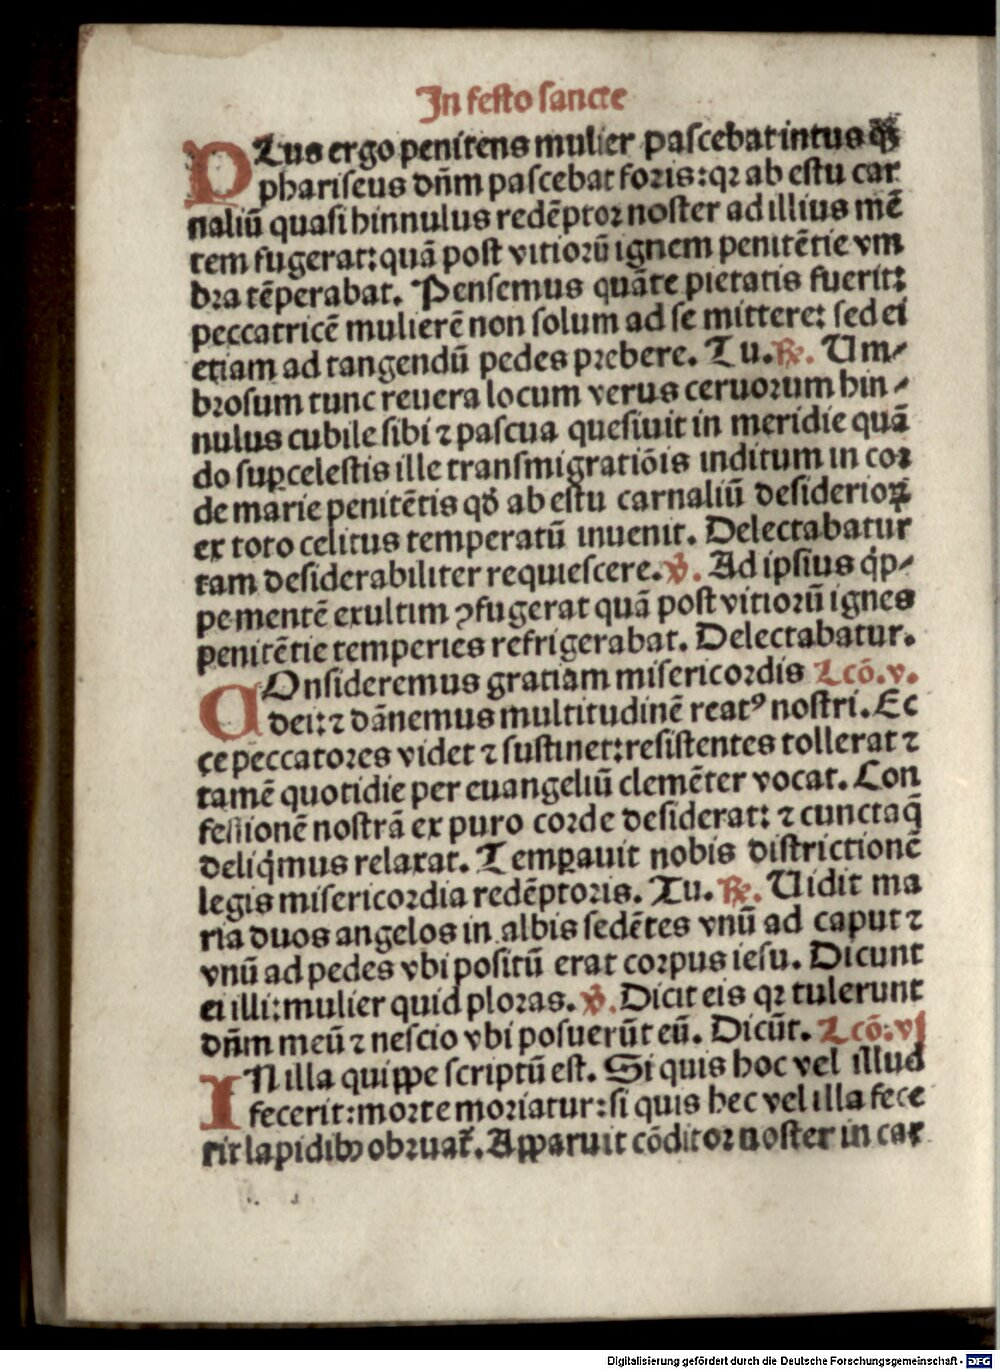 In festo sancte
PLus ergo penitens mulier pascebat intus qȝ
phariseus dn̄m pascebat foris: qꝛ ab estu car
naliū quasi hinnulus redēptor noster ad illius mē
tem fugerat: quā post vitiorū ignem penitētie vm
bra tēperabat. Pensemus quāte pietatis fuerit:
peccatricē mulierē non solum ad se mittere: sed ei
etiam ad tangendū pedes prebere. Tu. ℟. Um⸗
brosum tunc reuera locum verus ceruorum hin⸗
nulus cubile sibi ⁊ pascua quesiuit in meridie quā
do suꝑcelestis ille transmigratiōis inditum in cor
de marie penitētis qđ ab estu carnaliū desiderioꝝ
ex toto celitus temperatū inuenit. Delectabatur
tam desiderabiliter requiescere. ℣. Ad ipsius q̇p⸗
pe mentē exultim ꝯfugerat quā post vitiorū ignes
penitētie temperies refrigerabat. Delectabatur.
COnsideremus gratiam misericordis Lcō. v.
dei: ⁊ dānemus multitudinē reatꝰ nostri. Ec
ce peccatores videt ⁊ sustinet: resistentes tollerat ⁊
tamē quotidie per euangeliū clemēter vocat. Con
fessionē nostrā ex puro corde desiderat: ⁊ cuncta q̄
deliq̇mus relaxat. Temꝑauit nobis districtionē
legis misericordia redēptoris. Tu. ℟. Uidit ma
ria duos angelos in albis sedētes vnū ad caput ⁊
vnū ad pedes vbi positū erat corpus iesu. Dicunt
ei illi: mulier quid ploras. ℣. Dicit eis qꝛ tulerunt
dn̄m meū ⁊ nescio vbi posuerūt eū. Dicūt. Lcō. vj
IN illa quippe scriptū est. Si quis hoc vel illud
fecerit: morte moriatur: si quis hec vel illa fece
rit lapidibꝰ obruat᷑. Apparuit cōditor noster in car